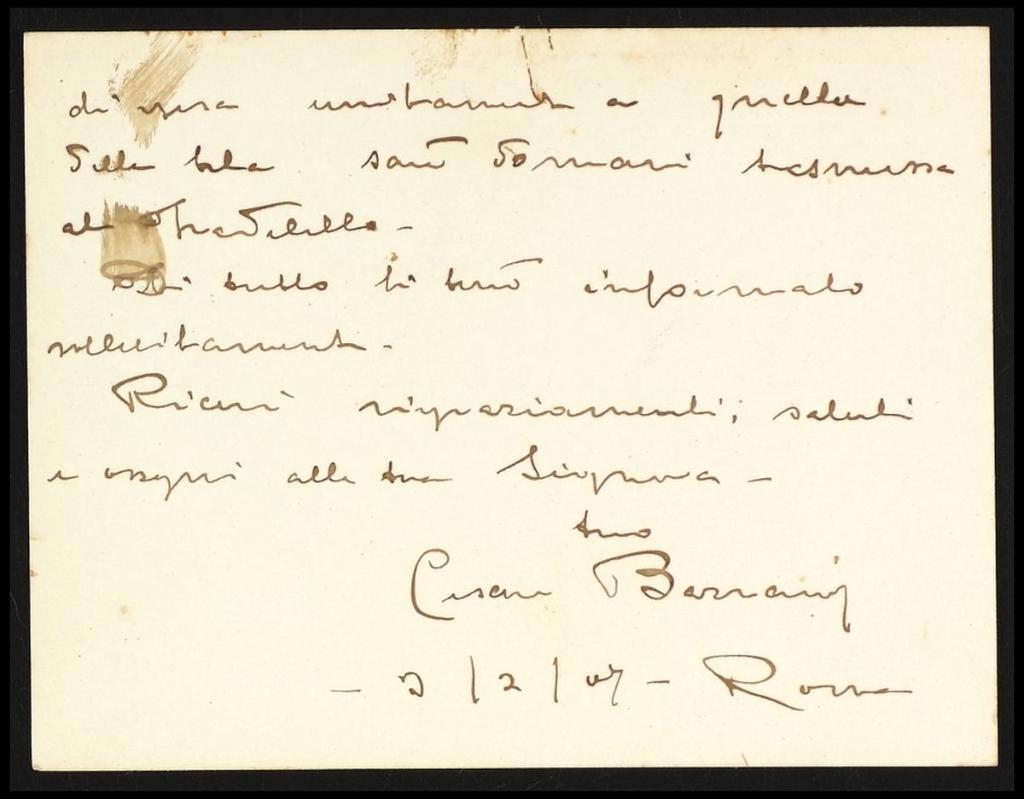 di spesa unitamente a quella
della tela sarà domani trasmessa
al Fradeletto -
Di tutto ti terrò informato
sollecitamente -
Ricevi ringraziamenti, saluti
e ossequi alla tua Signora -
tuo
Cesare
- 2/2/07 - Roma